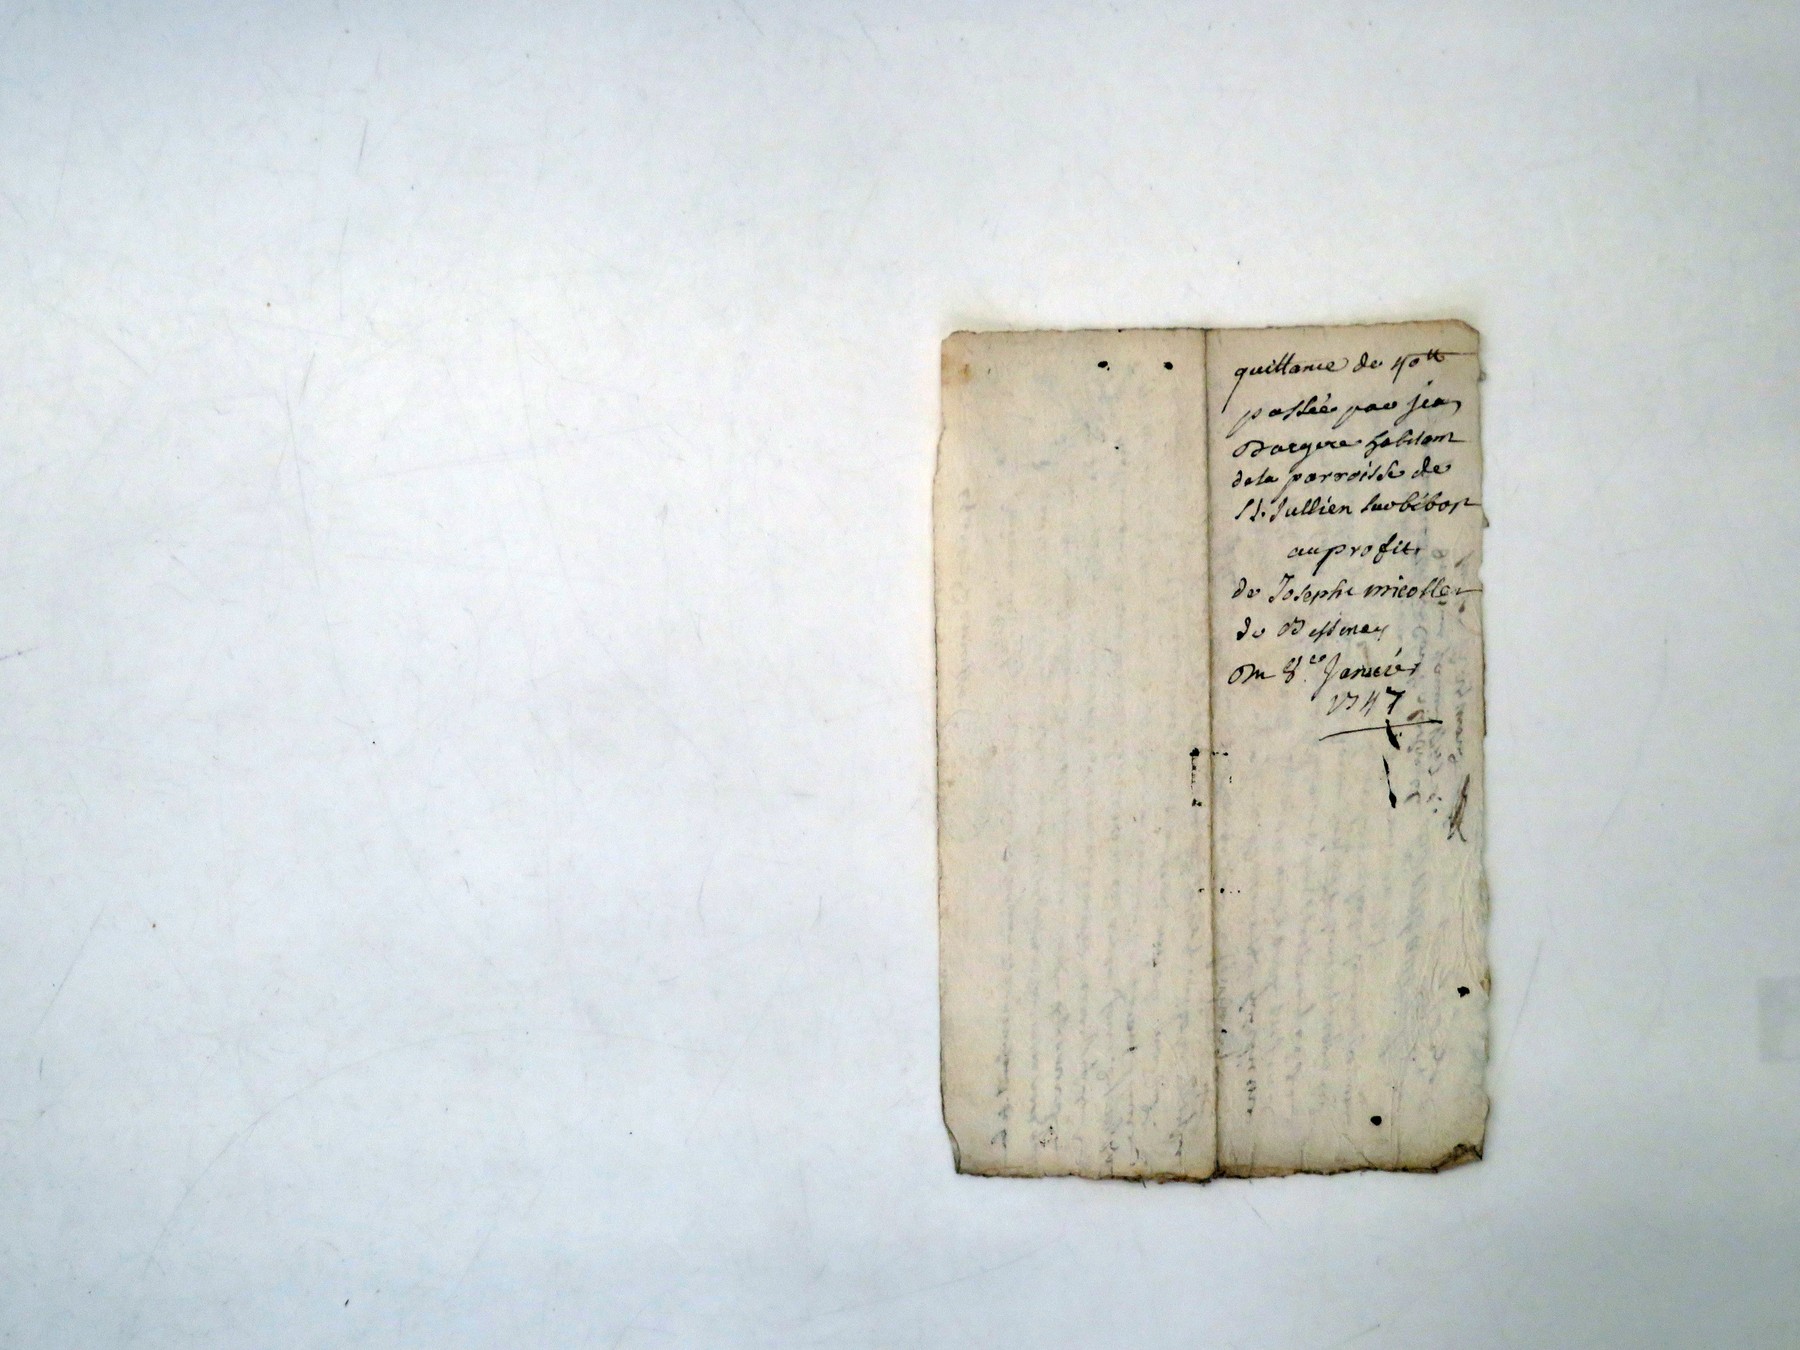 quittance de 40tt
passée par jean
Dargere habitant
dela parroisse de
St. Jullien sur bibost
au profit
de Joseph micollet
de Bessenay
Du 8.e Janvier
1747